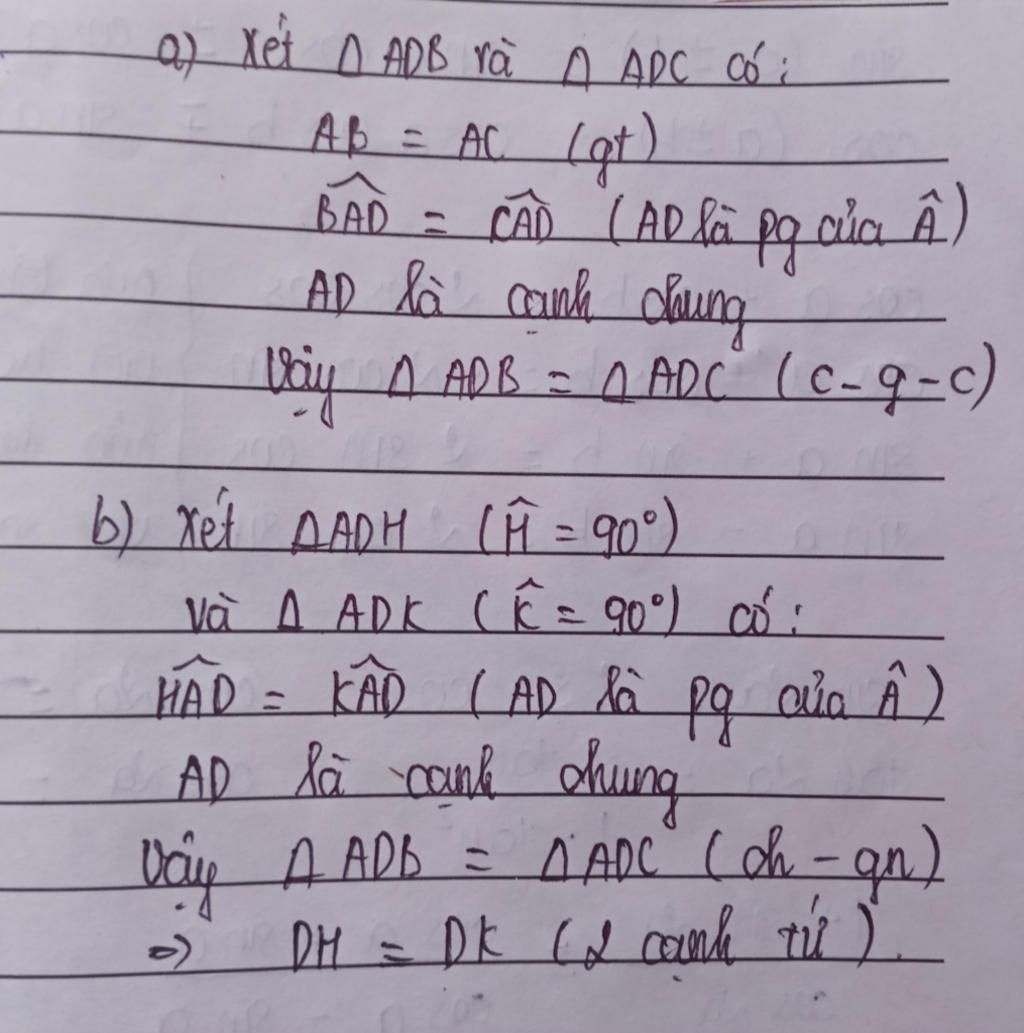 a) Xét Δ ADB và Δ ADC có:
AB = AC (gt)
\widehat{BAD} = \widehat{CAD} (AD là pg của Â)
AD là cạnh chung
Vậy Δ ADB = Δ ADC (c-g-c)
b) Xét ΔADH (\widehat{H} = 90°)
và Δ ADK (\widehat{K} = 90°) có:
\widehat{HAD} = \widehat{KAD} (AD là pg của Â)
AD là cạnh chung
Vậy Δ ADB = Δ ADC (ch - gn)
=> DH = DK (2 cạnh tứ).